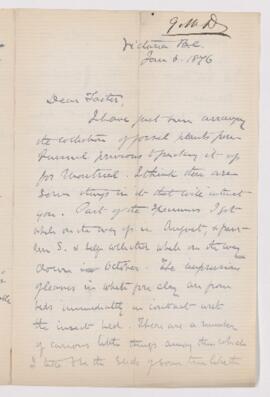 G. M. D.
Victoria B.C.
Jan 6. 1876
Dear Father,
I have just been arranging
the collection of fossil plants from
Quesnel previous to packing it up
for Montreal. I think there are
some things in it that will interest
you. Part of the specimens I got
while on the way up in August, & part
& self collected while on the way
down in October. The impressions
of leaves in white fine clay are from
beds immediately in contact with
the insect bed. There are a number
of curious little things among them which
I take to be the seeds of some tree like the